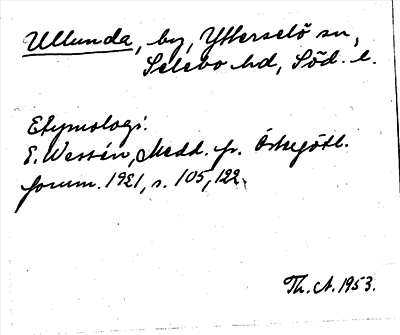 Ullunda, by, Ytterselö sn,
Selebo hd, Söd. l.
Etymologi:
E. Wessén, Medd. fr. Östergötl.
fornm. 1921, s. 105, 122.
Th. A. 1953.